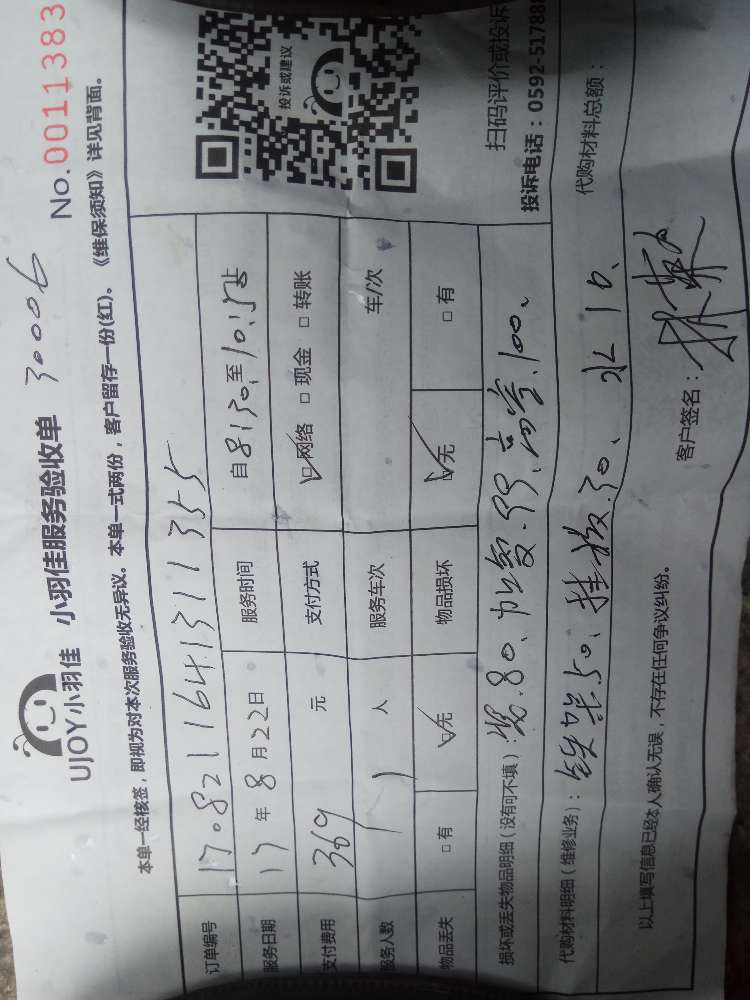 30006
UJOY小羽佳 小羽佳服务验收单 No.0011383
本单一经核签，即视为对本次服务验收无异议。本单一式两份，客户留存一份(红)。《维保须知》详见背面。
订单编号 17.8211641311355
服务日期 17年8月22日 服务时间 自8:30至10:15止
支付费用 369元 支付方式 ☑网络 □现金 □转账
服务人数 1人 服务车次 车/次
物品丢失 □有 ☑无 物品损坏 ☑无 □有
投诉或建议
扫码评价或投诉
投诉电话：0592-51788
损坏或丢失物品明细（没有可不填）：装.80、加氟.99、高空.100、
代购材料明细（维修业务）：铁架50、挂板.30、水10、 代购材料总额：
以上填写信息已经本人确认无误，不存在任何争议纠纷。 客户签名：